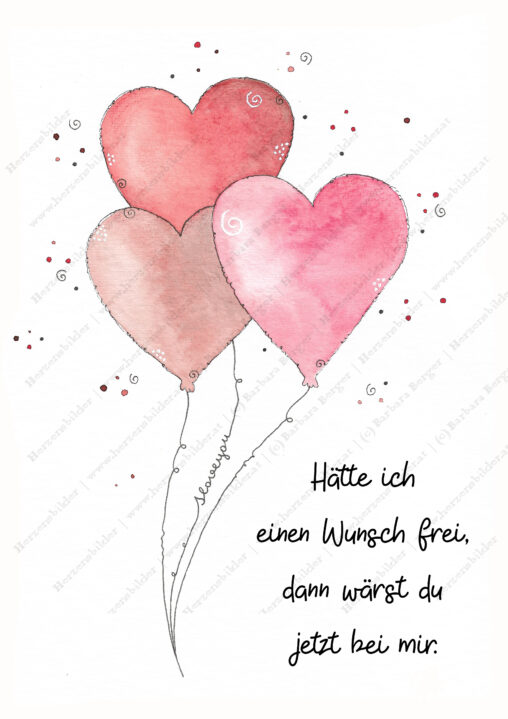 iloveyou
Hätte ich
einen Wunsch frei,
dann wärst du
jetzt bei mir.
Herzensbilder | www.herzensbilder.at | (c) Barbara Berger